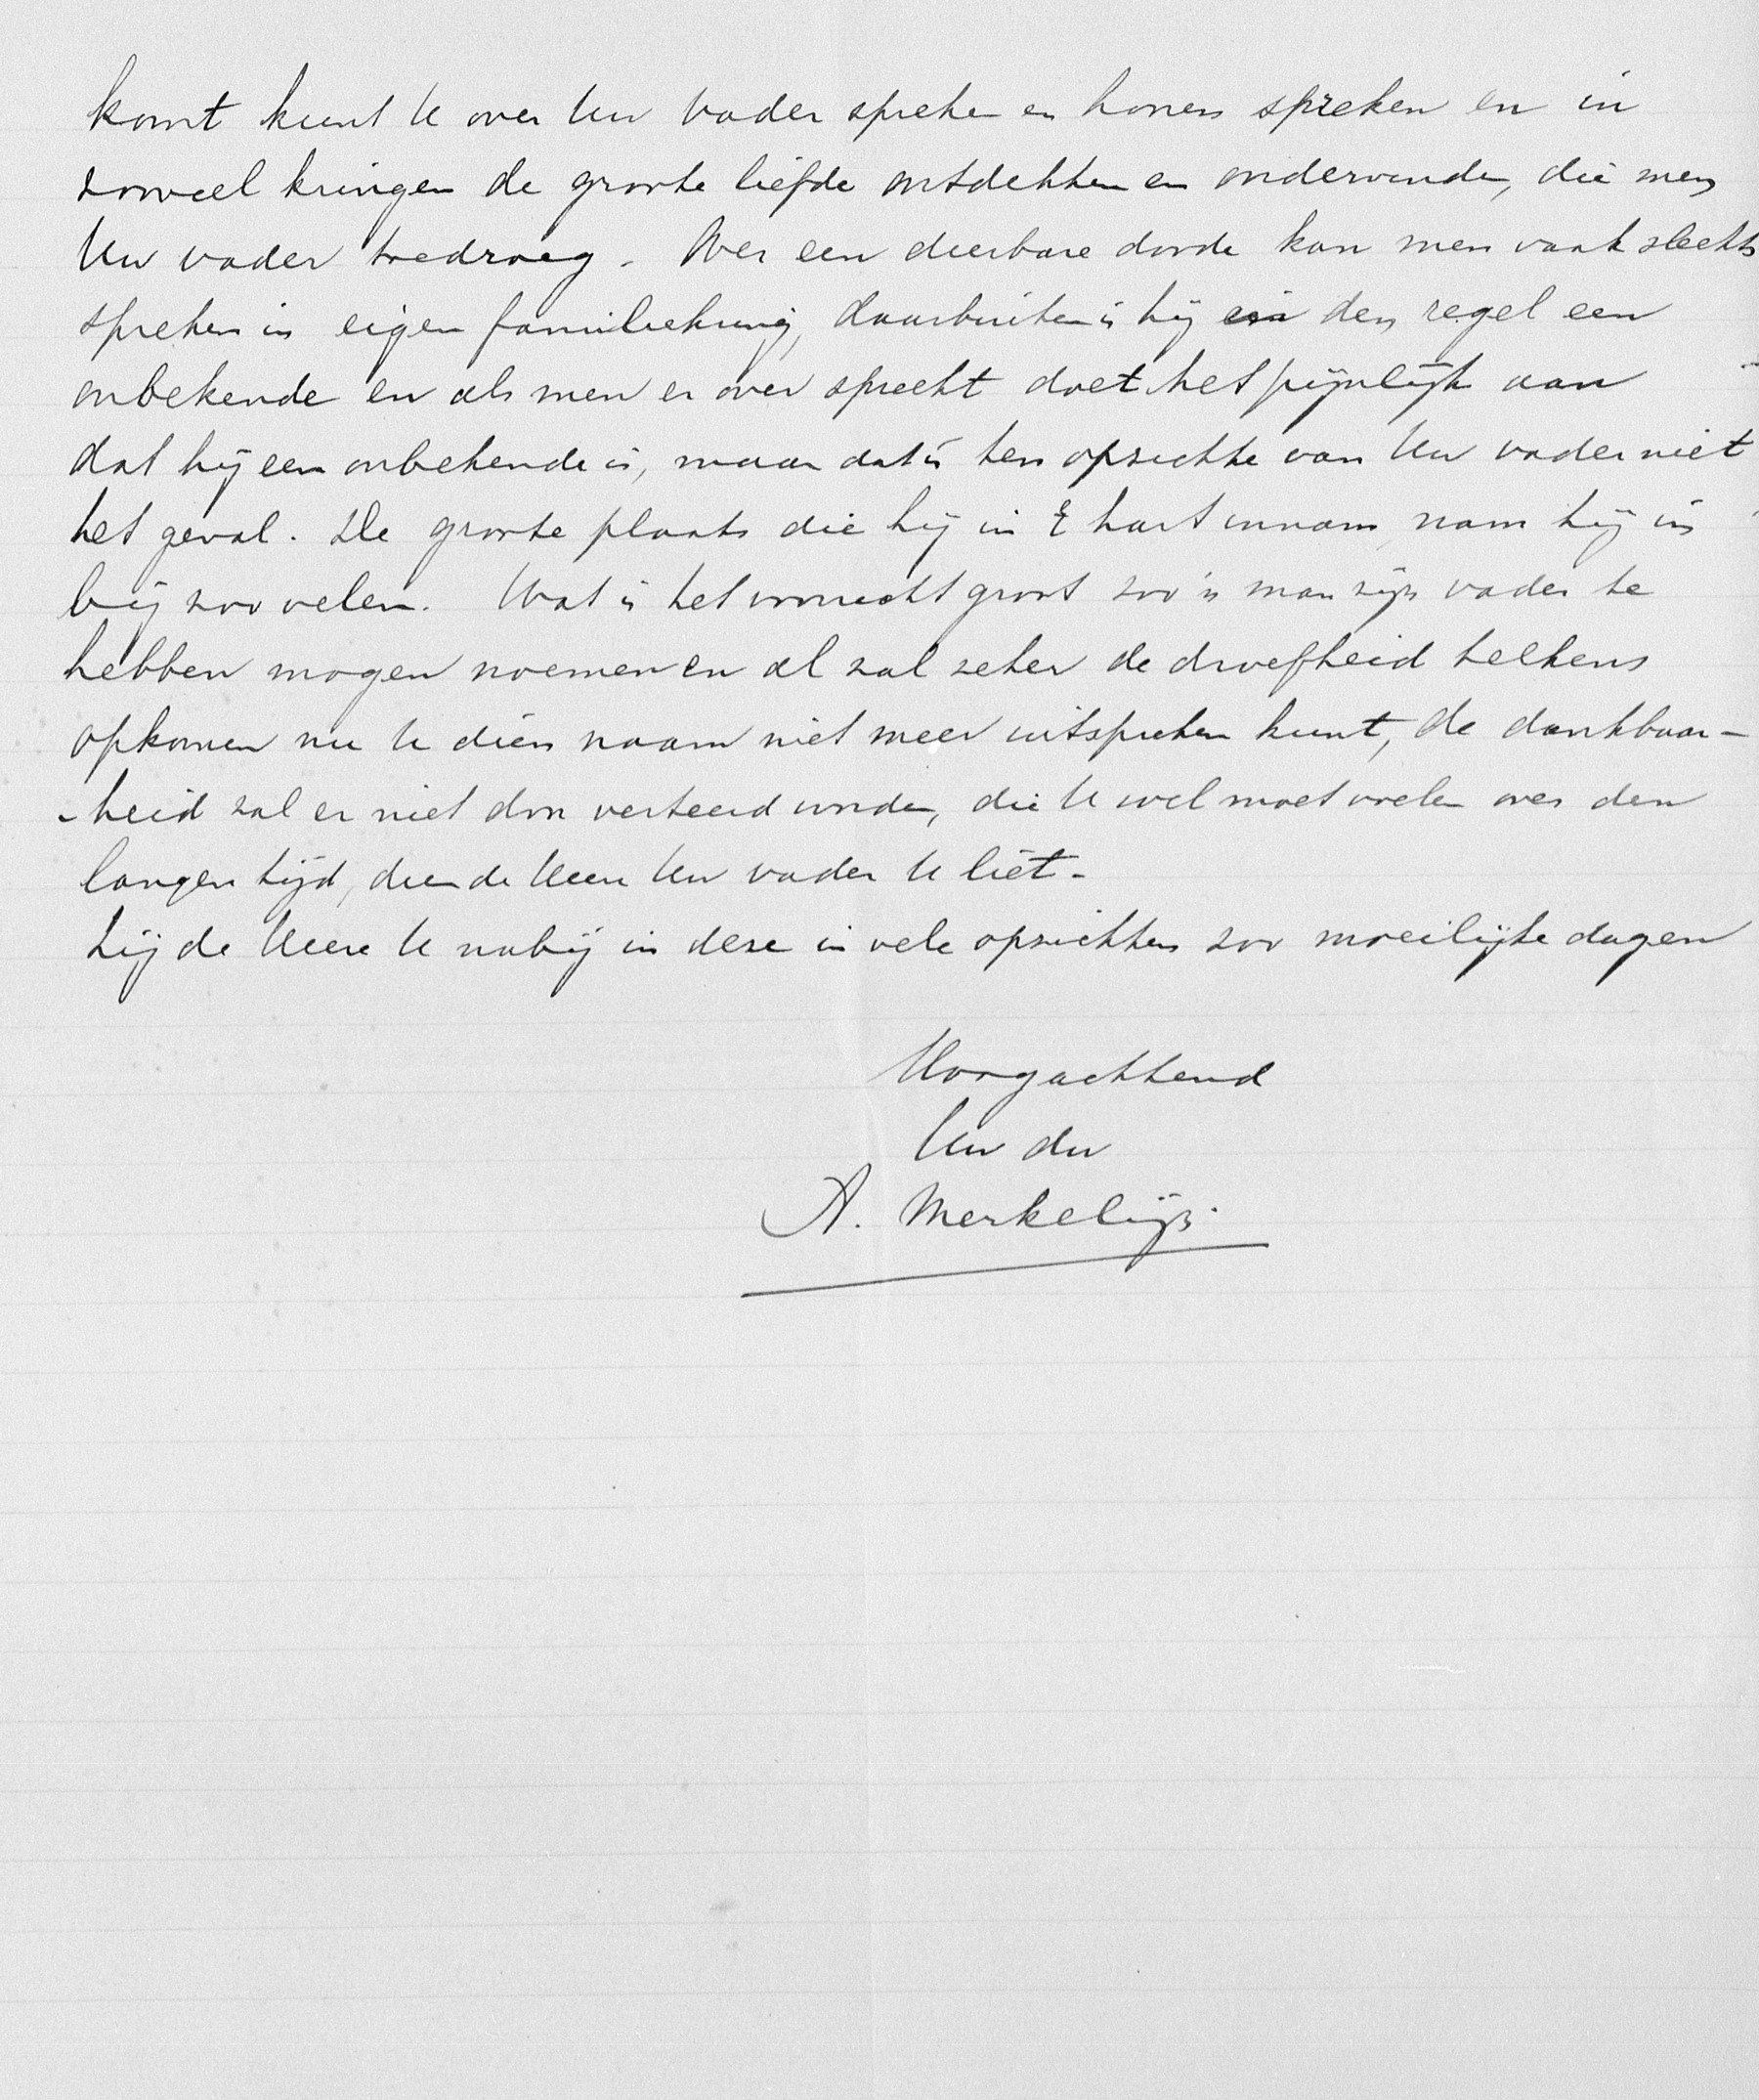 komt kunt U over Uw vader spreken en hooren spreken en in
zooveel kringen de groote liefde ontdekken en ondervinden, die men
Uw vader toedroeg. Over een dierbare doode kan men vaak slechts
spreken in eigen familiekring, daarbuiten is hij in den regel een
onbekende en als men er over spreekt doet het pijnlijk aan
dat hij een onbekende is, maar dat is ten opzichte van Uw vader niet
het geval. De groote plaats die hij in 't hart innam, nam hij in
bij zoo velen. Wat is het voorrecht groot zoo'n man zijn vader te
hebben mogen noemen en al zal zeker de droefheid telkens
opkomen nu U dien naam niet meer uitspreken kunt, de dankbaar-
-heid zal er niet door verteerd worden, die U wel moet voelen over den
langen tijd, dien de Heere Uw vader U liet.
Zij de Heere U nabij in deze in vele opzichten zoo moeilijke dagen
Hoogachtend
Uw dw
A. Merkelijn.